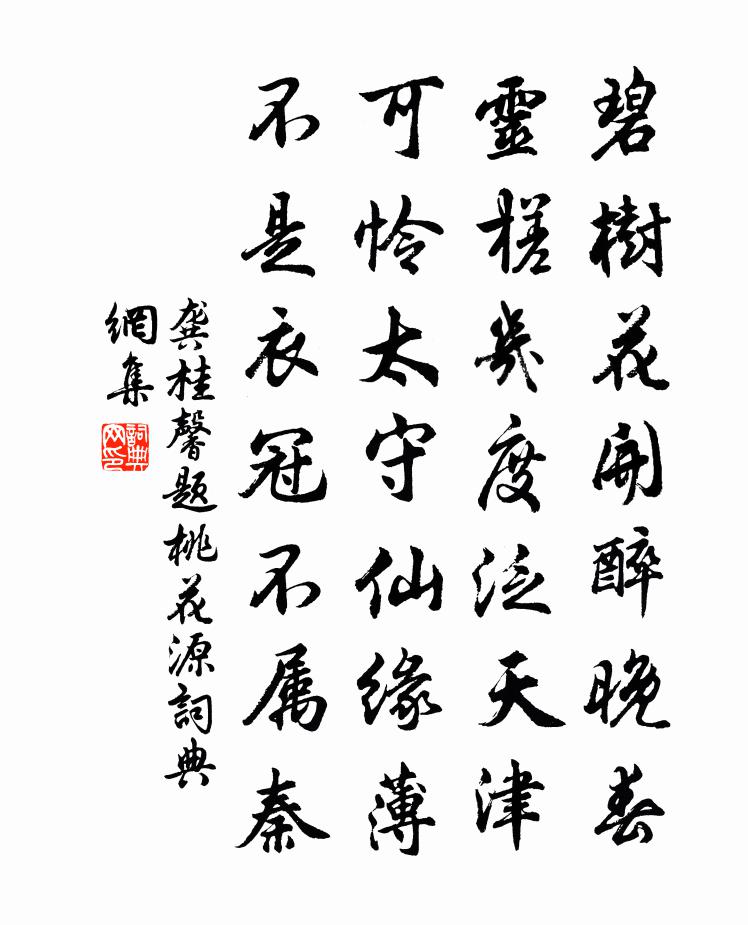 碧樹花開醉晚春
靈槎幾度泛天津
可怜太守仙緣薄
不是衣冠不属秦
龔桂馨題桃花源詞典
網集
詞典
网印